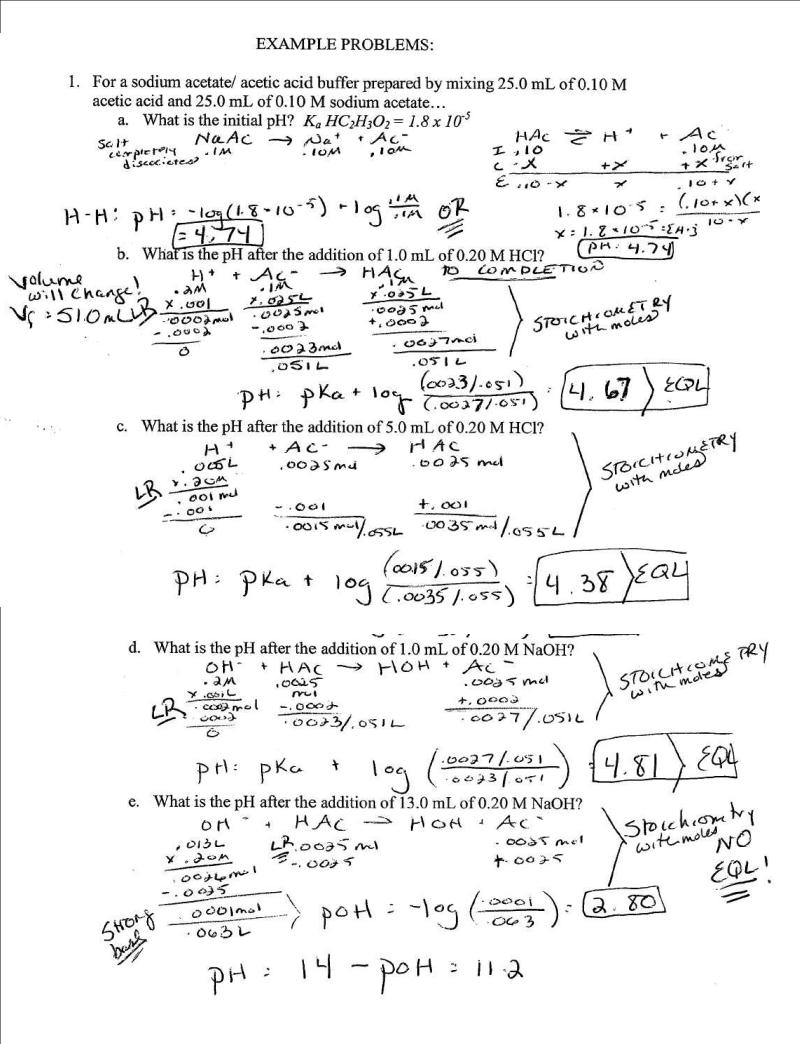 EXAMPLE PROBLEMS:
1. For a sodium acetate/ acetic acid buffer prepared by mixing 25.0 mL of 0.10 M
acetic acid and 25.0 mL of 0.10 M sodium acetate…
a. What is the initial pH? Ka HC2H3O2 = 1.8 x 10^-5
Salt completely dissociates
NaAc → Na+ + Ac-
.1M .10M .10M
HAc ⇌ H+ + Ac
I .10 .10M from salt
C -x +x +x
E .10-x x .10+x
H-H: pH = -log(1.8×10^-5) + log .1M/.1M OR
= 4.74
1.8×10^-5 = (.10+x)(x / .10-x
x = 1.8×10^-5 = [H+]
pH = 4.74
b. What is the pH after the addition of 1.0 mL of 0.20 M HCl?
Volume will change!
Vf = 51.0 mL LR
H+ + Ac- → HAc TO COMPLETION
.2M .1M .1M
x .001 x .025L x .025L
.0002mol .0025mol .0025mol
-.0002 -.0002 +.0002
0 .0023mol .0027mol
.051L .051L
STOICHIOMETRY with moles
pH = pKa + log (.0023/.051) / (.0027/.051) = 4.67 EQL
c. What is the pH after the addition of 5.0 mL of 0.20 M HCl?
H+ + Ac- → HAC
.005L .0025mol .0025 mol
x .20M
LR .001 mol
-.001 -.001 +.001
0 .0015 mol/.055L .0035 mol/.055L
STOICHIOMETRY with moles
pH = pKa + log (.0015/.055) / (.0035/.055) = 4.38 EQL
d. What is the pH after the addition of 1.0 mL of 0.20 M NaOH?
OH- + HAC → HOH + Ac-
.2M .0025 mol .0025 mol
x .001L
LR .0002mol -.0002 +.0002
.0002 .0023/.051L .0027/.051L
0
STOICHIOMETRY with moles
pH = pKa + log (.0027/.051 / .0023/.051) = 4.81 EQL
e. What is the pH after the addition of 13.0 mL of 0.20 M NaOH?
OH- + HAC → HOH + AC-
.013L LR .0025 mol .0025 mol
x .20M -.0025 +.0025
.0026mol
-.0025
.0001mol
.063L
Strong base
Stoichiometry with moles
NO EQL!
pOH = -log (.0001/.063) = 2.80
pH = 14 - pOH = 11.2